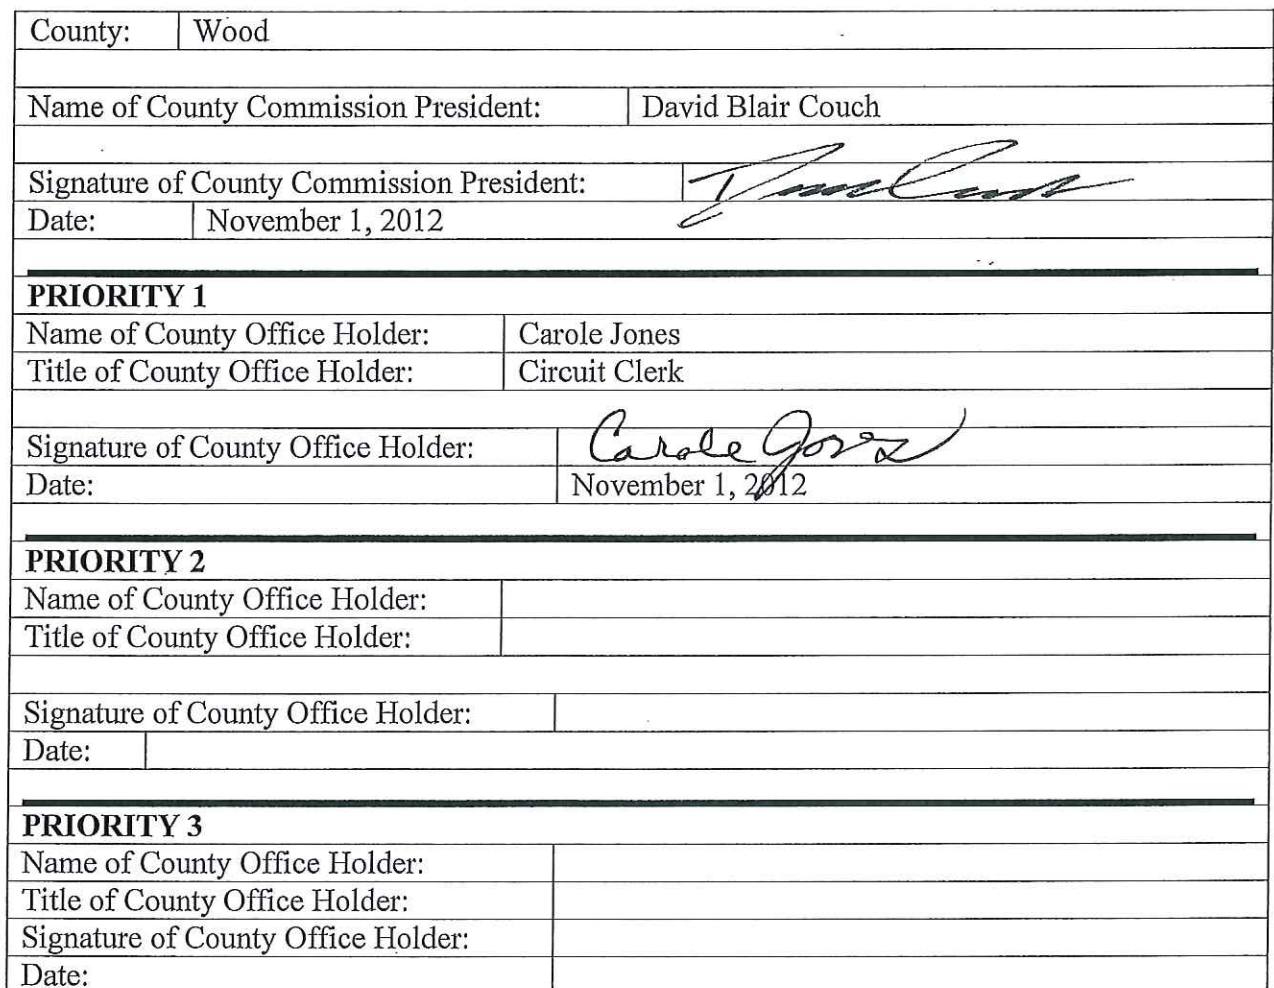 County: Wood
Name of County Commission President: David Blair Couch
Signature of County Commission President:
Date: November 1, 2012
PRIORITY 1
Name of County Office Holder: Carole Jones
Title of County Office Holder: Circuit Clerk
Signature of County Office Holder: Carole Jones
Date: November 1, 2012
PRIORITY 2
Name of County Office Holder:
Title of County Office Holder:
Signature of County Office Holder:
Date:
PRIORITY 3
Name of County Office Holder:
Title of County Office Holder:
Signature of County Office Holder:
Date: